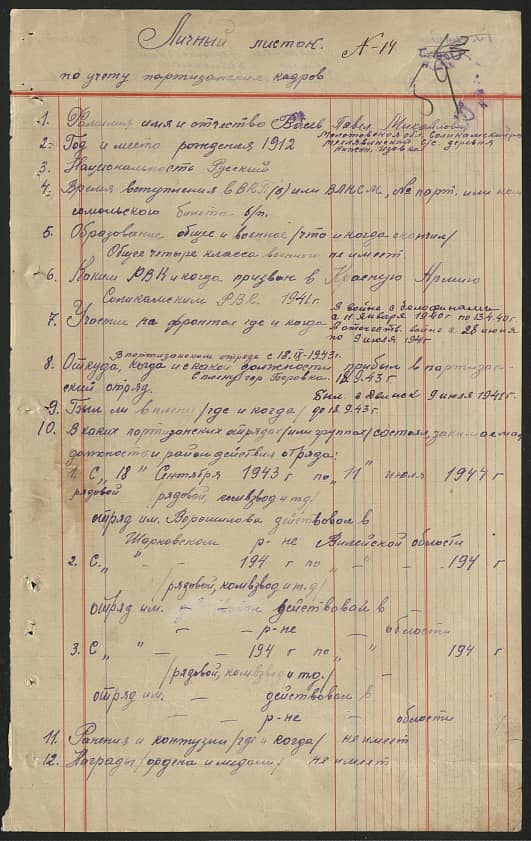 Личный листок. N-14
по учету партизанских кадров
1. Фамилия имя и отчество Павел Михайлович
Молотовская обл. Соликамский р-н
2. Год и место рождения 1912 с/с. деревня
3. Национальность Русский
4. Время вступления в ВКП(б) или ВЛКСМ, № парт. или ком
сомольского билета б/п.
5. Образование общее и военное /что и когда окончил/
Общее четыре класса военного не имеет
6. Каким РВК и когда призван в Красную Армию
Соликамским РВК. 1941 г.
В войне с белофинами
7. Участие на фронтах где и когда с 11 января 1940 г по 13.4.40 г.
В отечеств. войне с 28 июня
по 9 июля 1941
В партизанском отряде с 18.IX-1943 г.
8. Откуда, когда и с какой должности прибыл в партизан-
ский отряд. гор Боровка. 18.9.43 г.
Был г Дамск 9 июля 1941 г.
9. Был ли в плену /где и когда/ до 18.9.43 г.
10. В каких партизанских отрядах /или группах/ состоял, занимаемая
должность и район действия отряда:
1. С „ 18 " Сентября 1943 г по „ 11 " июля 1944 г
рядовой /рядовой, комвзвод и т.д/
отряд им. Ворошилова действовал в
Шарковском р-не Вилейской области
2. С „ " - 194 г по „ " - 194 г
/рядовой, комвзвод и т.д/
отряд им. действовал в -
- р-не - области
3. С „ " - 194 г по „ " 194 г
/рядовой, комвзвод и т.д./ -
отряд им. - действовал в
- р-не - области
11. Ранения и контузии /где и когда/ не имеет
12. Награды /ордена и медали/ не имеет